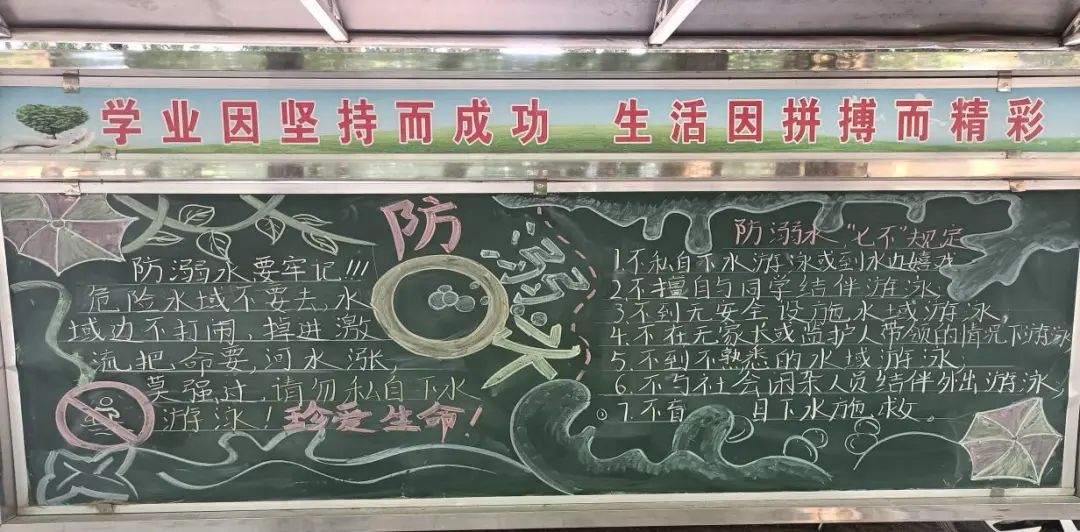 学业因坚持而成功 生活因拼搏而精彩
防溺水
防溺水要牢记!!!
危险水域不要去,水
域边不打闹,掉进激
流把命要,河水涨,
莫强过,请勿私自下水
游泳!珍爱生命!
防溺水"七不"规定
1.不私自下水游泳或到水边嬉戏
2.不擅自与同学结伴游泳
3.不到无安全设施水域游泳,
4.不在无家长或监护人带领的情况下游泳
5.不到不熟悉的水域游泳;
6.不与社会闲杂人员结伴外出游泳;
7.不盲 目下水施救。